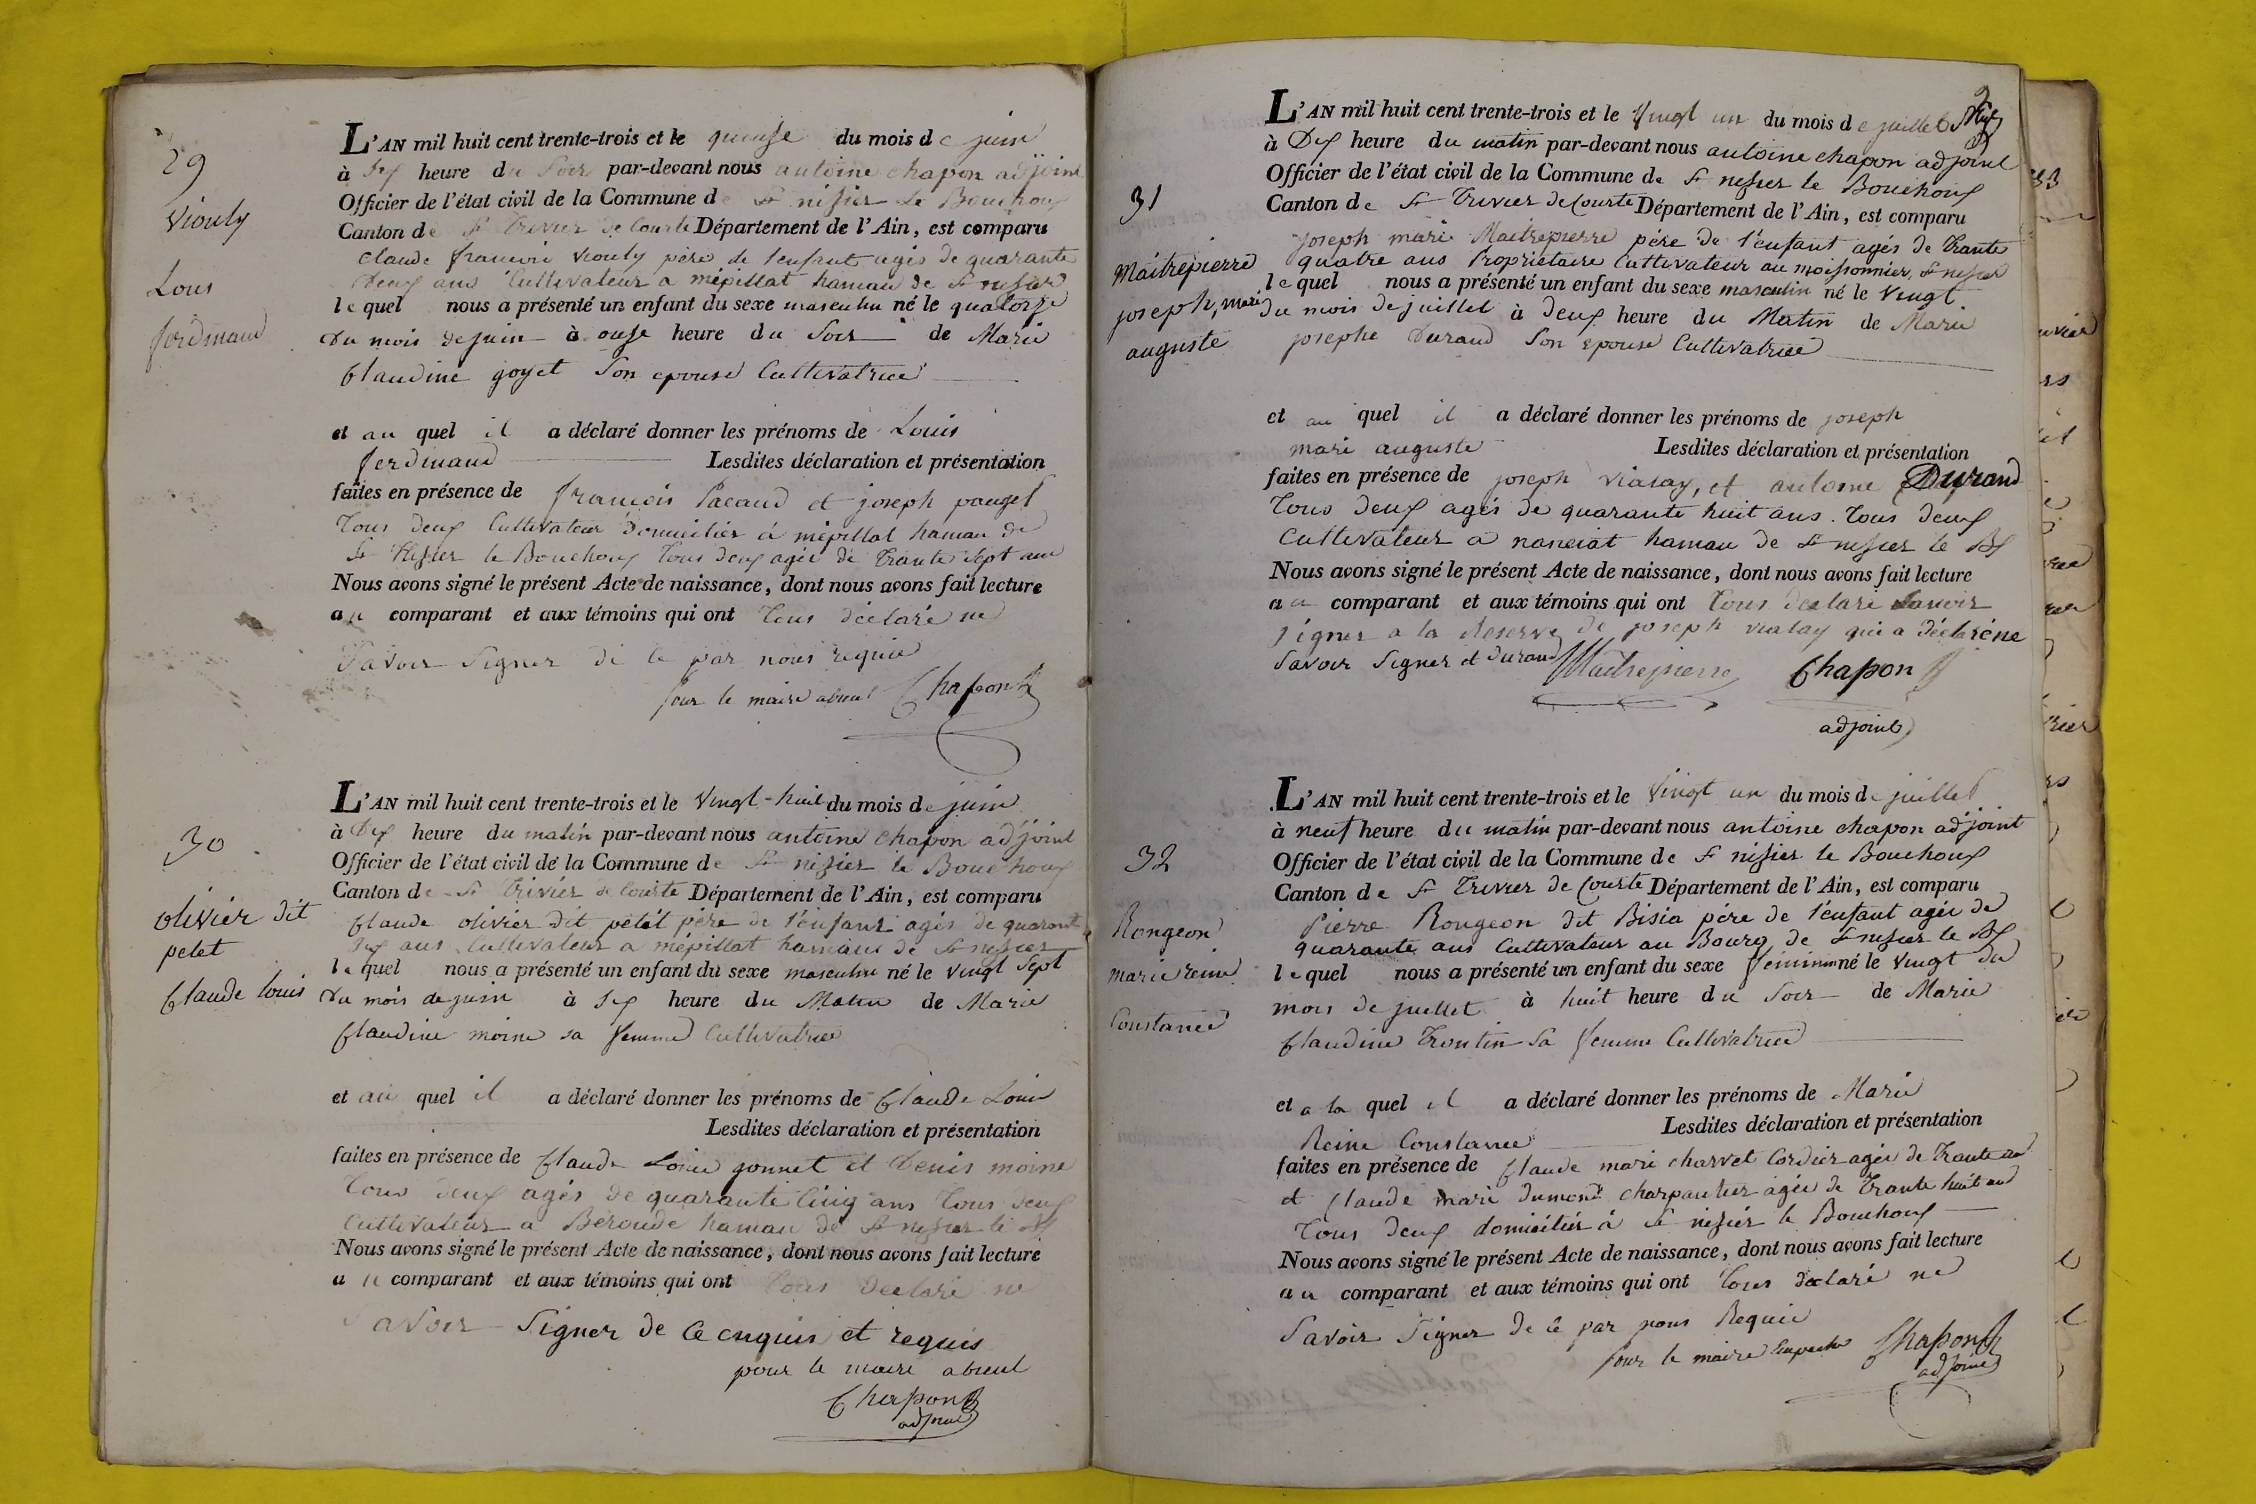 29
Viouly
Louis
ferdinand
L'AN mil huit cent trente-trois et le quinse du mois de juin
à six heure du Soir par-devant nous antoine chapon adjoint
Officier de l'état civil de la Commune de St nisier Le Bouchoux
Canton de St Trivier de Courte Département de l'Ain, est comparu
Claude francois viouly père de l'enfant agés de quarante
deux ans Cultivateur a mépillat hamau de St nisier
lequel nous a présenté un enfant du sexe masculin né le quatorze
du mois de juin à onse heure du Soir de Marie
Claudine goyet Son epouse Cultivatrice
et au quel il a déclaré donner les prénoms de Louis
ferdinand Lesdites déclaration et présentation
faites en présence de francois Pacaud et joseph pauget
Tous deux Cultivateur Domiciliés á mépillat hamau de
St Nisier le Bouchoux Tous deux agés de Trante sept ans
Nous avons signé le présent Acte de naissance, dont nous avons fait lecture
au comparant et aux témoins qui ont Tous déclaré ne
Savoir Signer de ce par nous requie
pour le maire absent Chapon
30
olivier dit
petet
Claude louis
L'AN mil huit cent trente-trois et le Vingt-huit du mois de juin
à Dix heure du matin par-devant nous antoine chapon adjoint
Officier de l'état civil de la Commune de St nisier le Bouchoux
Canton de St Trivier de Courte Département de l'Ain, est comparu
Claude olivier dit petet père de l'enfant agés de quarante
six ans Cultivateur a mépillat hamaus de St nisier
lequel nous a présenté un enfant du sexe masculin né le vingt Sept
du mois de juin à six heure du Matin de Marie
Claudine moine sa femme Cultivatrice
et au quel il a déclaré donner les prénoms de Claude Louis
Lesdites déclaration et présentation
faites en présence de Claude Louis gonnet et Denis moine
Tous deux agés de quarante Cinq ans Tous deux
Cultivateur a Béroude hamau de St nisier le Bx
Nous avons signé le présent Acte de naissance, dont nous avons fait lecture
au comparant et aux témoins qui ont Tous declaré ne
Savoir Signer de ce enquis et requis
pour le maire absent
Chapon
adjoint
31
Maitrepierre
joseph, marie
auguste
L'AN mil huit cent trente-trois et le Vingt un du mois de juillet
à Dix heure du matin par-devant nous antoine chapon adjoint
Officier de l'état civil de la Commune de St nisier le Bouchoux
Canton de St Trivier de Courte Département de l'Ain, est comparu
joseph marie Maitrepierre père de l'enfant agés de Trante
quatre ans Propriétaire Cultivateur au moissonnier, St nisier
lequel nous a présenté un enfant du sexe masculin né le Vingt
du mois de juillet à deux heure du Matin de Marie
josephe Durand Son epouse Cultivatrice
et au quel il a déclaré donner les prénoms de joseph
marie auguste Lesdites déclaration et présentation
faites en présence de joseph vialay, et antoine Durand
Tous deux agés de quarante huit ans. Tous deux
Cultivateur a nanciat hamau de St nisier le Bx
Nous avons signé le présent Acte de naissance, dont nous avons fait lecture
au comparant et aux témoins qui ont Tous declaré savoir
signer a la Reserve de joseph vialay qui a déclaré ne
Savoir Signer et Durand Maitrepierre Chapon
adjoint
32
Rongeon
marie reine
Constance
L'AN mil huit cent trente-trois et le Vingt un du mois de juillet
à neuf heure du matin par-devant nous antoine chapon adjoint
Officier de l'état civil de la Commune de St nisier le Bouchoux
Canton de St Trivier de Courte Département de l'Ain, est comparu
Pierre Rongeon dit Bisia père de l'enfant agés de
quarante ans Cultivateur au Bourg de St nisier le Bx
lequel nous a présenté un enfant du sexe féminin né le Vingt du
mois de juillet à huit heure du Soir de Marie
Claudine Trontin Sa femme Cultivatrice
et a la quel il a déclaré donner les prénoms de Marie
Reine Constance Lesdites déclaration et présentation
faites en présence de Claude marie charvet Cordier agés de Trante ans
et Claude marie dumond charpantier agés de Trante huit ans
Tous deux domiciliés á St nisiér le Bouchoux
Nous avons signé le présent Acte de naissance, dont nous avons fait lecture
au comparant et aux témoins qui ont Tous declaré ne
Savoir Signer de ce par nous Requie
pour le maire Chapon
adjoint